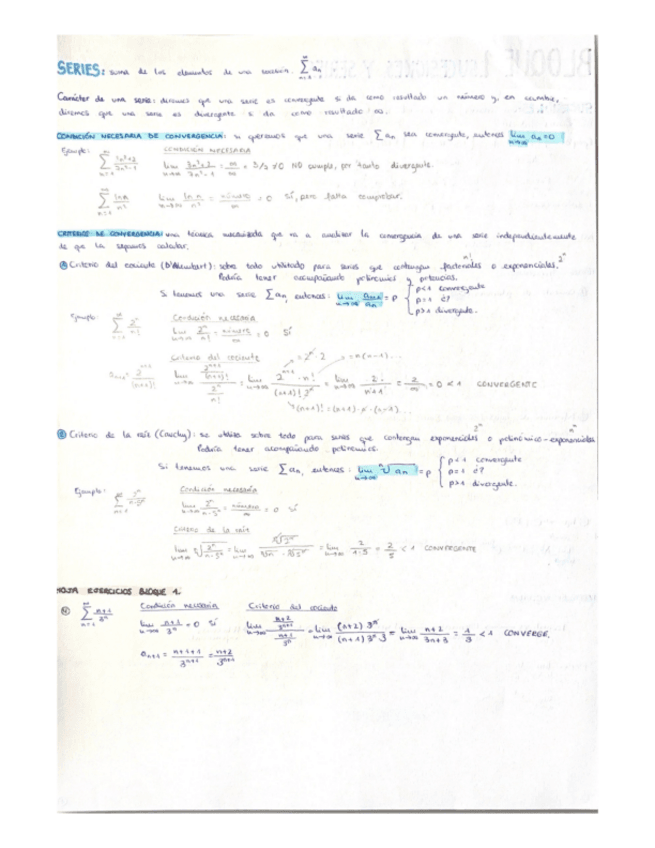 SERIES: suma de los elementos de una sucesión. ∑ aₙ
Carácter de una serie: diremos que una serie es convergente si da como resultado un número y, en cambio,
diremos que una serie es divergente si da como resultado ∞.
CONDICIÓN NECESARIA DE CONVERGENCIA: si queremos que una serie ∑ aₙ sea convergente, entonces lim n→∞ aₙ=0
Ejemplo: CONDICIÓN NECESARIA
lim n→∞ = ∞/∞ = 3/2 ≠0 NO cumple, por tanto divergente.
∑ ln n/n² lim n→∞ ln n/n² = número/∞ = 0 Sí, pero falta comprobar.
CRITERIOS DE CONVERGENCIA: una técnica que va a analizar la convergencia de una serie independientemente
de que la sepamos calcular.
Criterio del cociente (D'Alembert): sobre todo utilizado para series que contengan factoriales o exponenciales. n! 2ⁿ
Podría tener acompañando polinomios y potencias.
Si tenemos una serie ∑ aₙ, entonces: lim n→∞ aₙ₊₁/aₙ = p { p<1 convergente
p=1 ¿?
p>1 divergente.
Ejemplo: ∑ 2ⁿ/n! Condición necesaria
lim n→∞ 2ⁿ/n! = número/∞ = 0 Sí
Criterio del cociente = 2ⁿ·2 = n(n-1)...
aₙ₊₁ = 2ⁿ⁺¹/(n+1)! lim n→∞ (2ⁿ⁺¹/(n+1)!)/(2ⁿ/n!) = lim n→∞ 2ⁿ⁺¹·n!/(n+1)! 2ⁿ = lim n→∞ 2/n+1 = 2/∞ = 0 < 1 CONVERGENTE
(n+1)! = (n+1)·n·(n-1)...
Criterio de la raíz (Cauchy): se utiliza sobre todo para series que contengan exponenciales o polinómico-exponenciales 2ⁿ nⁿ
Podría tener acompañando polinomios.
Si tenemos una serie ∑ aₙ, entonces: lim n→∞ ⁿ√aₙ = p { p<1 convergente
p=1 ¿?
p>1 divergente.
Ejemplo: ∑ 2ⁿ/n·5ⁿ Condición necesaria
lim n→∞ 2ⁿ/n·5ⁿ = número/∞ = 0 Sí
Criterio de la raíz
lim n→∞ ⁿ√(2ⁿ/n·5ⁿ) = lim n→∞ ⁿ√2ⁿ/ⁿ√n·ⁿ√5ⁿ = lim n→∞ 2/1·5 = 2/5 < 1 CONVERGENTE
HOJA EJERCICIOS BLOQUE 1.
∑ n+1/3ⁿ Condición necesaria Criterio del cociente
lim n→∞ n+1/3ⁿ = 0 Sí lim n→∞ (n+2/3ⁿ⁺¹)/(n+1/3ⁿ) = lim n→∞ (n+2) 3ⁿ/(n+1) 3ⁿ 3 = lim n→∞ n+2/3n+3 = 1/3 < 1 CONVERGE.
aₙ₊₁ = n+1+1/3ⁿ⁺¹ = n+2/3ⁿ⁺¹